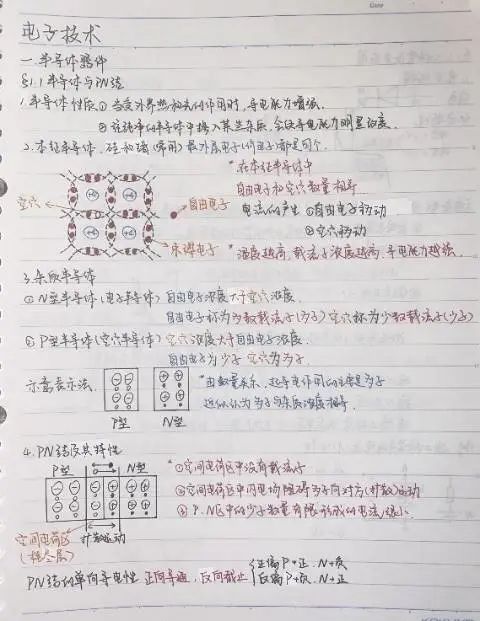 电子技术
一.半导体器件
§1.1 半导体与PN结
1.半导体性质 ① 当受外界热和光的作用时,导电能力增强.
② 往纯净的半导体中掺入某些杂质,会使导电能力明显改变.
2.本征半导体.硅和锗(常用)最外层电子(价电子)都是四个.
*在本征半导体中
自由电子和空穴数量相等
空穴
+4 +4
自由电子
电流的产生 ①自由电子移动
②空穴移动
+4 +4
束缚电子
*温度越高,载流子浓度越高,导电能力越强.
3.杂质半导体
① N型半导体(电子半导体) 自由电子浓度大于空穴浓度.
自由电子称为多数载流子(多子) 空穴称为少数载流子(少子)
② P型半导体(空穴半导体) 空穴浓度大于自由电子浓度.
自由电子为少子 空穴为多子.
示意表示法.
P型 N型
*由数量关系,起导电作用的主要是多子
近似认为多子与杂质浓度相等.
4.PN结及其特性
P型 N型
*①空间电荷区中没有载流子
②空间电荷区中内电场阻碍多子向对方(扩散)运动
③ P.N区中的少子数量有限,形成的电流很小.
空间电荷区
(耗尽层)
扩散运动
PN结的单向导电性 正向导通,反向截止
正偏 P+正.N+负
反偏 P+负.N+正